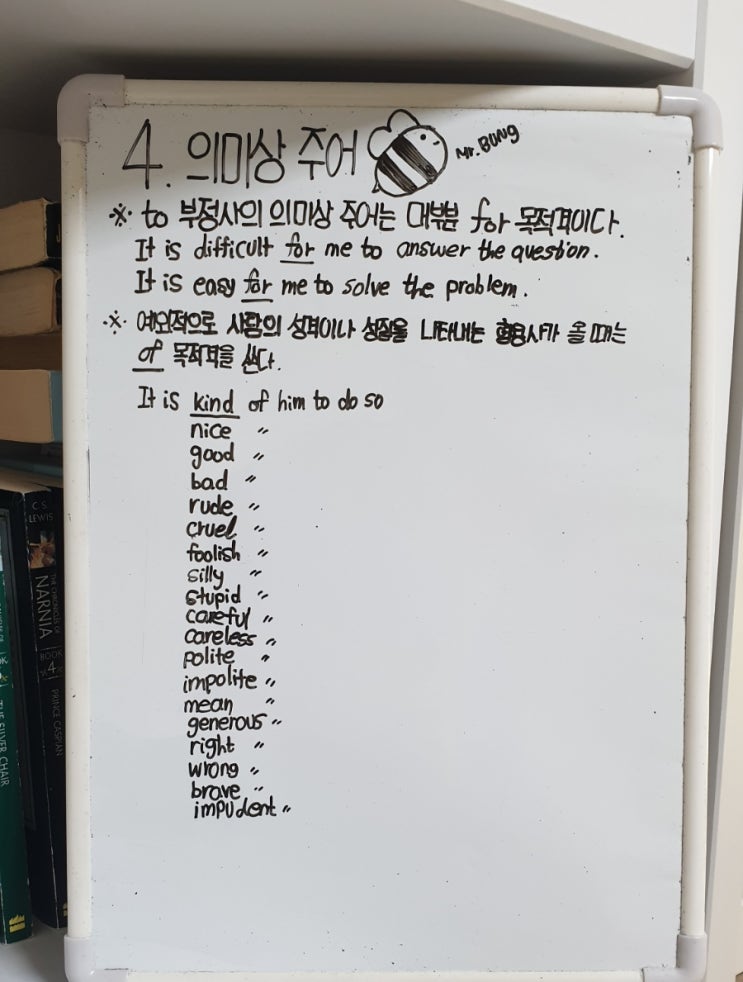 4. 의미상 주어
Mr. BUNG
※ to 부정사의 의미상 주어는 대부분 for 목적격이다.
It is difficult for me to answer the question.
It is easy for me to solve the problem.
※ 예외적으로 사람의 성격이나 성질을 나타내는 형용사가 올 때는
of 목적격을 쓴다.
It is kind of him to do so
nice 〃
good 〃
bad 〃
rude 〃
cruel 〃
foolish 〃
silly 〃
stupid 〃
careful 〃
careless 〃
polite 〃
impolite 〃
mean 〃
generous 〃
right 〃
wrong 〃
brave 〃
impudent 〃
C.S.
LEWIS
THE CHRONICLES OF
NARNIA
BOOK
4
PRINCE CASPIAN
THE SILVER CHAIR